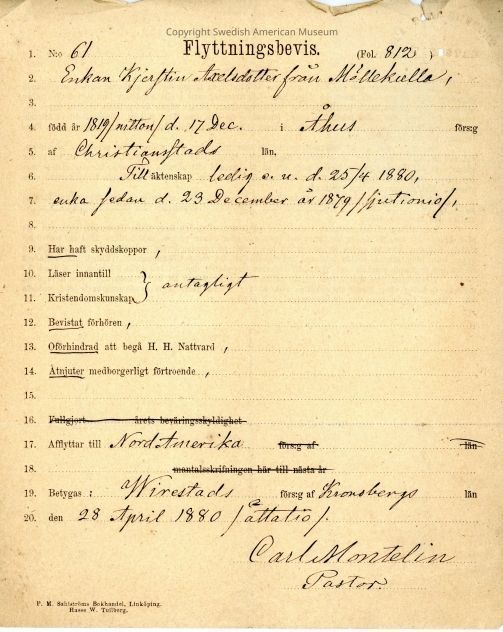 Copyright Swedish American Museum
1. N:o 61 Flyttningsbevis. (Fol. 812 )
2. Enkan Kjerstin Axelsdotter från Möllekulla,
3.
4. född år 1819/nitton/ d. 17 Dec. i Åhus förs:g
5. af Christianstads län,
6. Till äktenskap ledig e. u. d. 25/4 1880,
7. enka sedan d. 23 December år 1879/sjutionio/,
8.
9. Har haft skyddskoppor,
10. Läser innantill
11. Kristendomskunskap } antagligt
12. Bevistat förhören,
13. Oförhindrad att begå H. H. Nattvard,
14. Åtnjuter medborgerligt förtroende,
15.
16. Fullgjort årets beväringsskyldighet
17. Afflyttar till Nord Amerika förs:g af län
18. mantalsskrifningen här till nästa år
19. Betygas: Wirestads förs:g af Kronobergs län
20. den 28 April 1880 /åttatio/.
Carl Montelin
Pastor.
P. M. Sahlströms Bokhandel, Linköping.
Husse W. Tullberg.